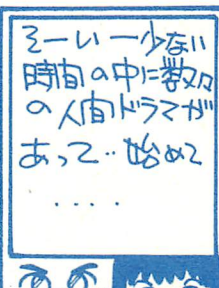 そーいー少ない
時間の中に数々
の人間ドラマが
あって‥始めて
‥‥